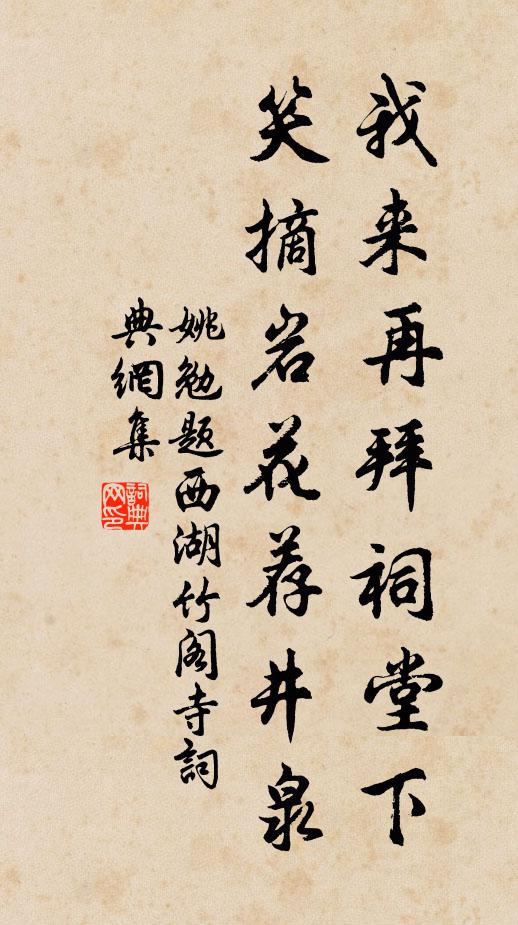 我来再拜祠堂下
笑摘岩花荐井泉
姚勉题西湖竹阁寺词
典網集
詞典
网印